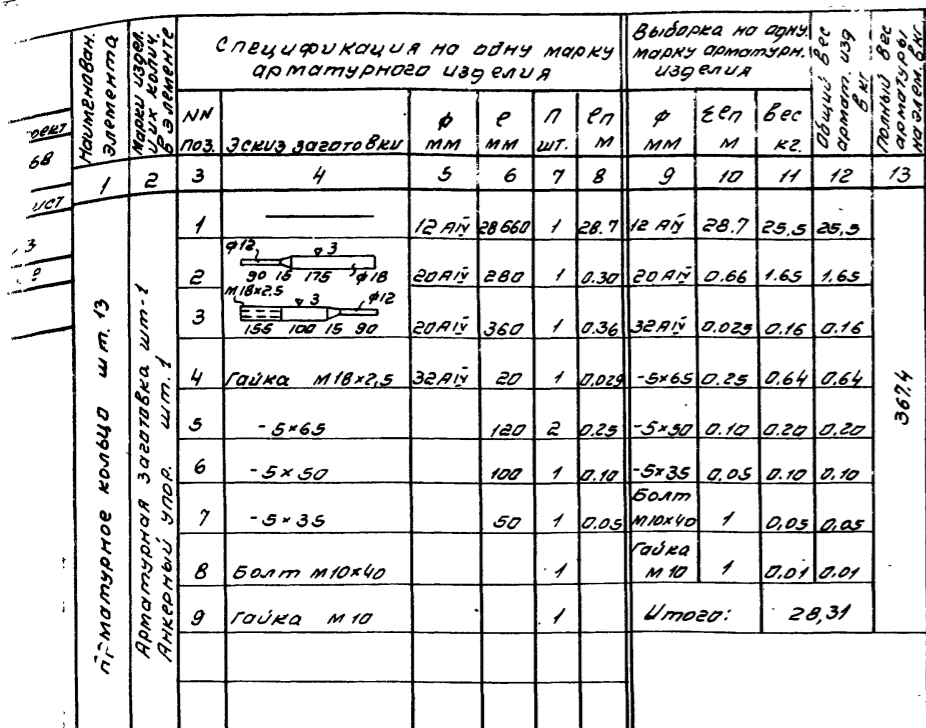 Наименован. элемента
Марки издел. и их колич. в элементе
Спецификация на одну марку арматурного изделия
Выборка на одну марку арматурн. изделия
Общий вес армат. изд в кг
Полный вес арматуры на элем. в кг
NN поз. Эскиз заготовки φ мм ℓ мм п шт. ℓп м φ мм Σℓп м вес кг.
1 2 3 4 5 6 7 8 9 10 11 12 13
68
3
матурное кольцо шт. 13
Арматурная заготовка шт-1
Анкерный упор. шт. 1
1 12 АIV 28660 1 28.7 12 АIV 28.7 25,5 25,5
φ12 ▽3
90 15 175 φ18
2 20АIV 280 1 0.30 20 АIV 0.66 1.65 1,65
М18×2,5 ▽3 φ12
155 100 15 90
3 20АIV 360 1 0.36 32АIV 0.025 0.16 0.16
4 Гайка М18×2,5 32АIV 20 1 0.029 -5×65 0.25 0.64 0,64
5 -5×65 120 2 0.25 -5×50 0.10 0.20 0,20
6 -5×50 100 1 0.10 -5×35 0,05 0.10 0,10
7 -5×35 50 1 0.05 Болт М10×40 1 0,05 0,05
8 Болт М10×40 1 Гайка М10 1 0,01 0,01
9 Гайка М10 1 Итого: 28,31
367.4